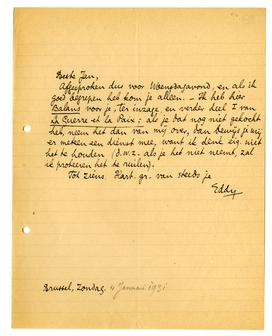 Beste Jan,
Afgesproken dus voor Woensdagavond, en als ik
goed begrepen heb kom je alleen. - Ik heb hier
Balans voor je, ter inzage, en verder deel I van
la Guerre et la Paix; als je dat nog niet gekocht
hebt, neem het dan van mij over, dan bewijs je mij
er meteen een dienst mee, want ik denk zig. niet
het te houden (d.w.z. als je het niet neemt, zal
ik probeeren het te ruilen).
Tot ziens. Hart. gr. van steeds je
Eddy
Brussel, Zondag. 4 Januari 1931